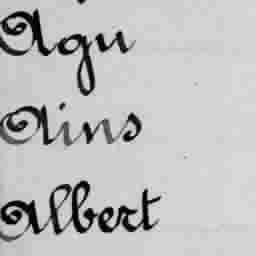 Agu
Ains
Albert